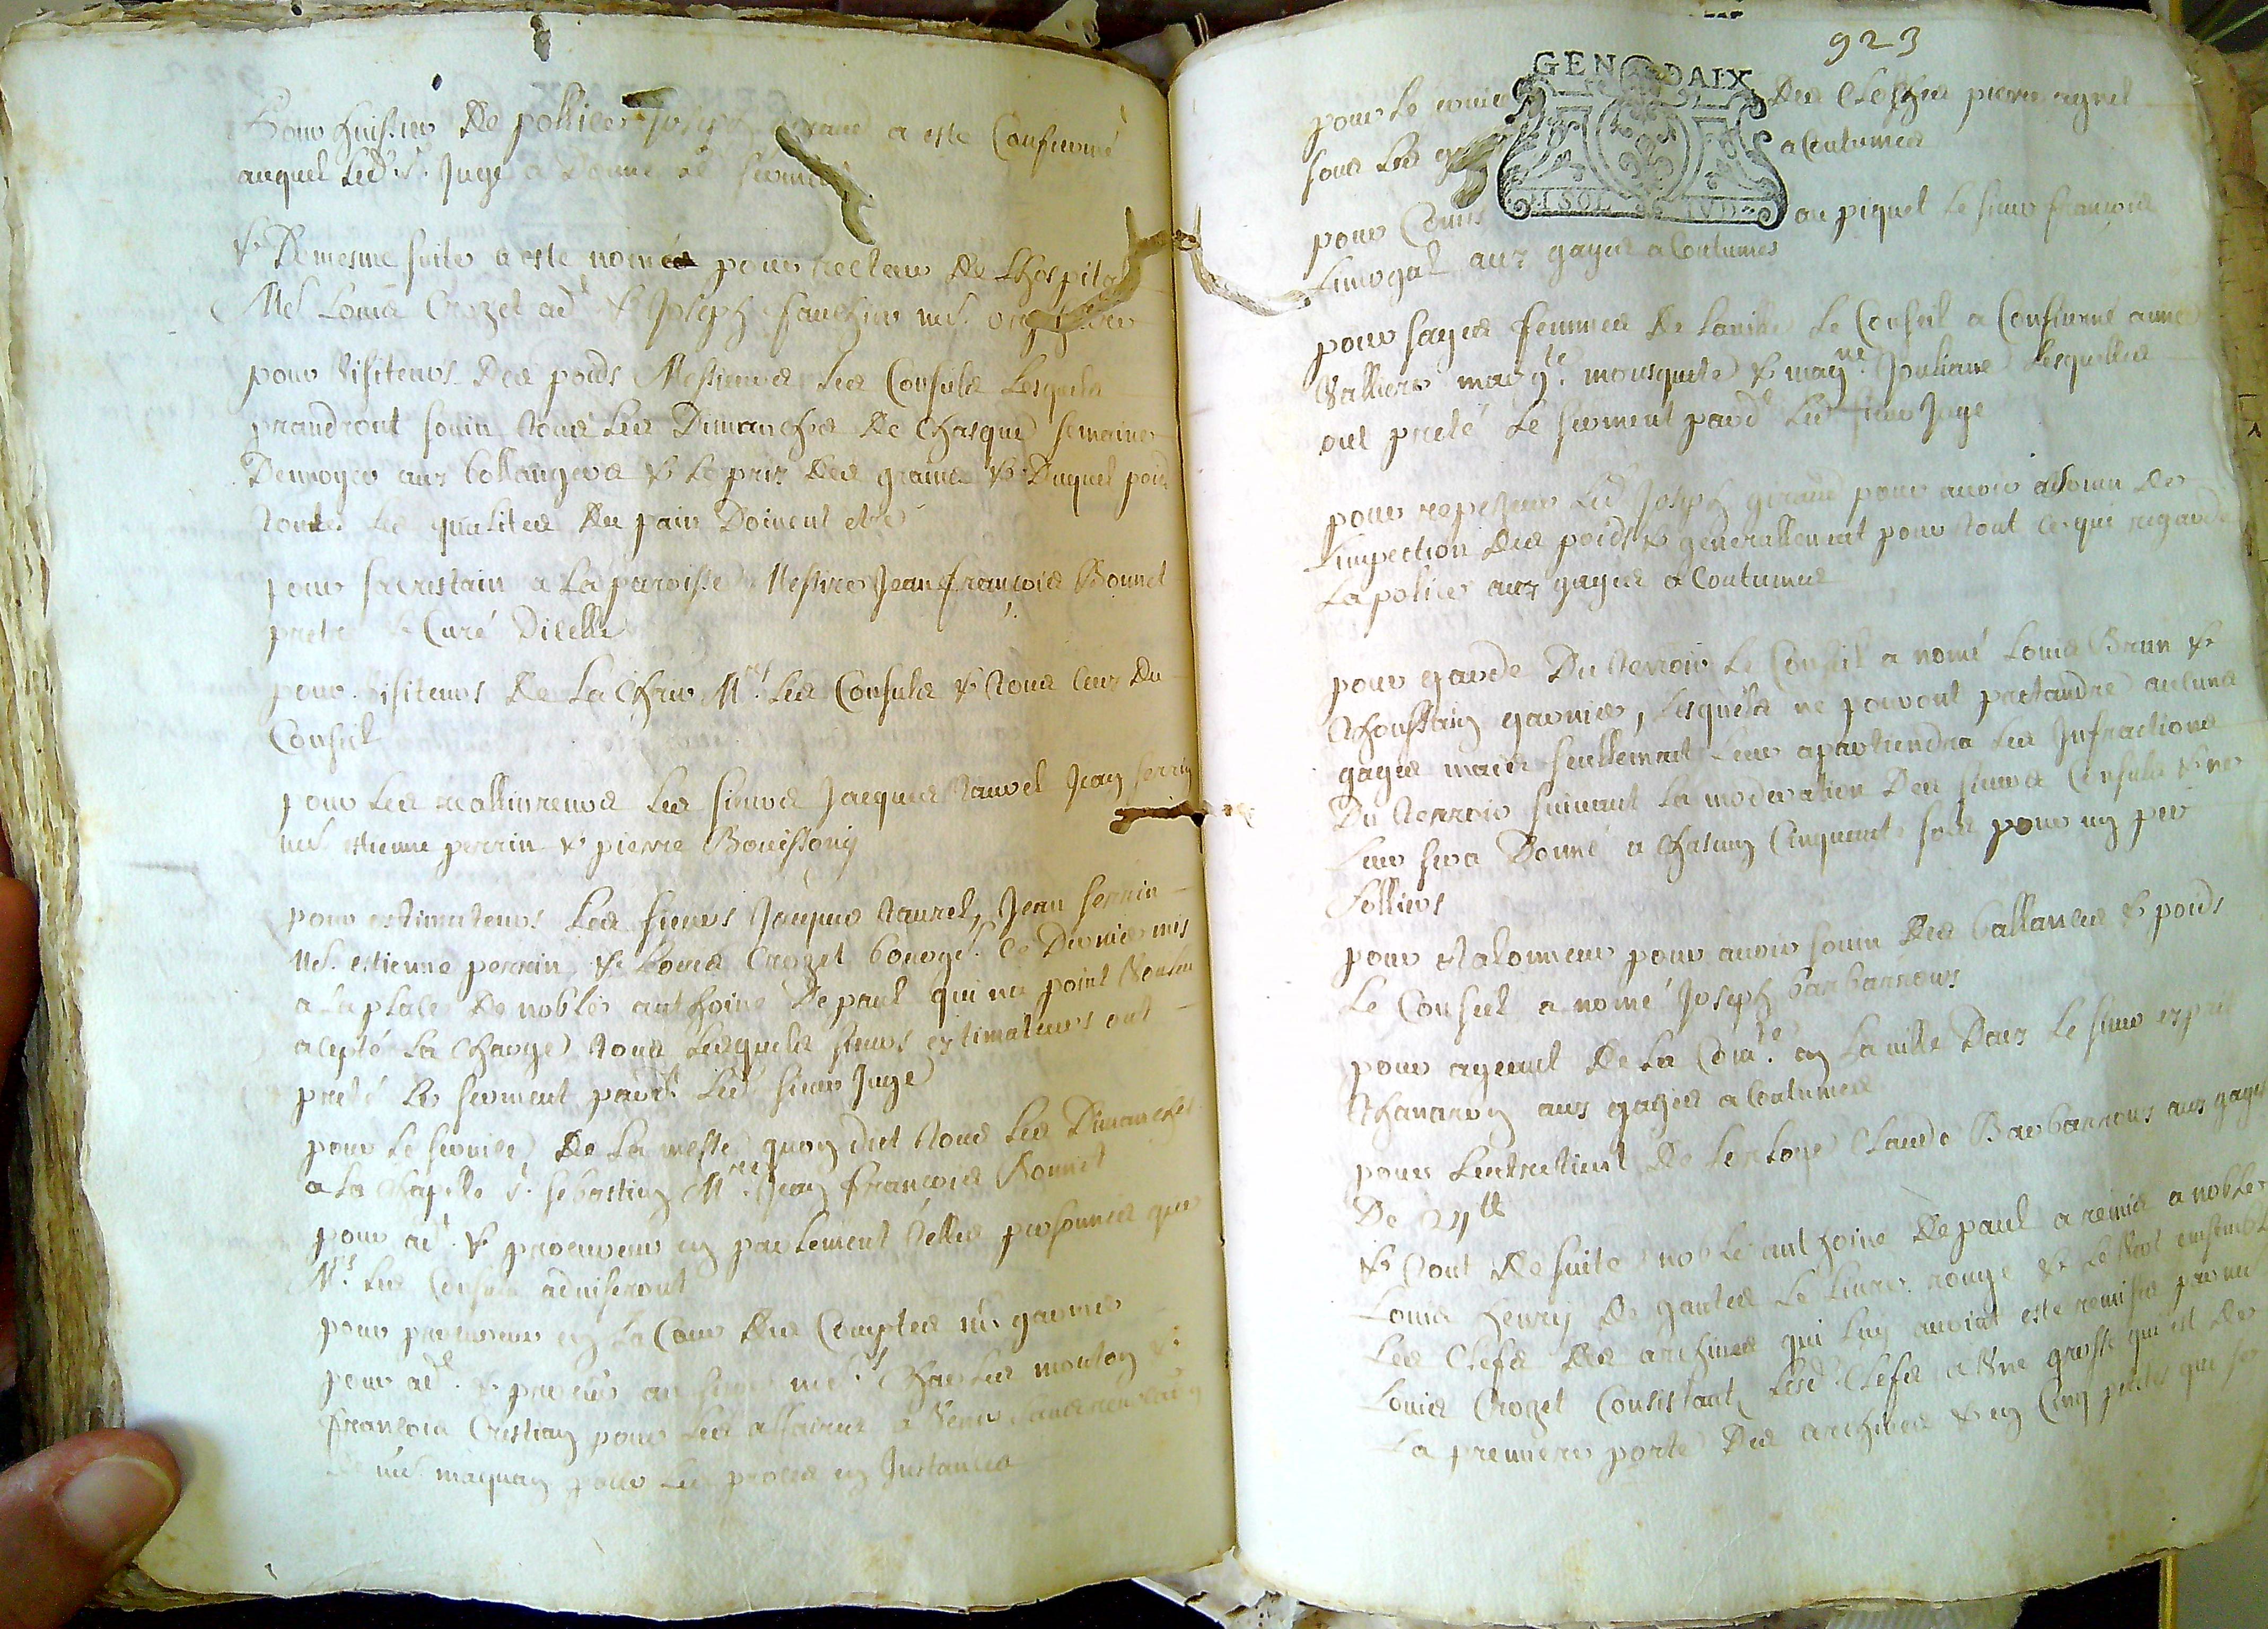 Pour huissier de pollice Joseph giraud a esté Confirmé
auquel led. Sr. Juge a Donné le serment
& De mesme suite a esté nomée pour recteur de Lhospital
Me. Louis Crozet adt & Joseph fauchier me.
pour Visiteurs des poids Messieurs les Consuls Lesquels
prandront souin tous les Dimanches de Chasque semaine
Denvoyer aux bollangers & le prix des graines & Duquel poix
toutes les qualites du pain Doivent etre
pour sacristain a La paroisse Messire Jean françois Bonnet
pretre & Curé Dicelle
pour Visiteurs de La Cher Mrs. les Consuls & tous ceux du
Conseil
pour les les sieurs Jacques taurel Jean serrin
me. estienne perrin & pierre Bouissony
pour estimateurs les sieurs Jacques taurel, Jean serrin
Me. estienne perrin & Louis Crozet bourgs. ce Dernier mis
a la place de noble anthoine Depaul qui na point Vouleu
acepté la Charge tous lesquels sieurs estimateurs ont
preté le serment pardt. led. sieur Juge
pour le service de la messe quon dit tous les Dimanches
a la Chapelle St. sebastien Mre. Jean françois Bonnet
pour adt. & procureur en parlement telles personnes que
Mrs. les Consuls adviseront
pour procureur en la Cour des Comptes me. garnier
pour adt. & procur au siege me. Charles mouton &
françois Cristian pour les affaires a Venir
& me. maquan pour les proces en Instance
923
GEN DAIX
I SOL
pour le des Cloches pierre agnel
sous les acoutumes
pour Comis au piquet le sieur françois
Limogal aux gages acoutumes
pour sages femmes de laville le Conseil a Confirmé anne
Valliere margte. mousquete & magne. Juliane lesquelles
ont preté le serment pardt led sieur Juge
pour repeseur led Joseph giraud pour avoir asouin de
Linspection des poids & generallement pour tout ce qui regarde
La police aux gages acoutumes
pour garde du terroir le Conseil a nomé Louis Brun &
thoussain garnier, lesquels ne pouront pretandre aucuns
gages mais seullemant leur apartiendra les Infractions
du terroir suivant la moderation des sieurs Consuls & ne
leur sera Donné a chasun Cinquante sols pour un per
solliers
pour etalonneur pour avoir souin des ballances & poids
le Conseil a nomé Joseph barbarrous
pour agent de la Comté. en laville Daix le sieur esprit
thanaron aux gages acoutumes
pour lentretient de lerloge Claude Barbarrous aux gages
De 24 ll
& tout de suite noble anthoine Depaul a remis a noble
Louis henry de gantes le livre rouge & le Vert ensemble
les Clefs des archives qui luy avoint esté remises par me
Louis Crozet Consistant lesd. Clefs a Une grosse qui est de
La premiere porte des archives & en Cinq petites qui